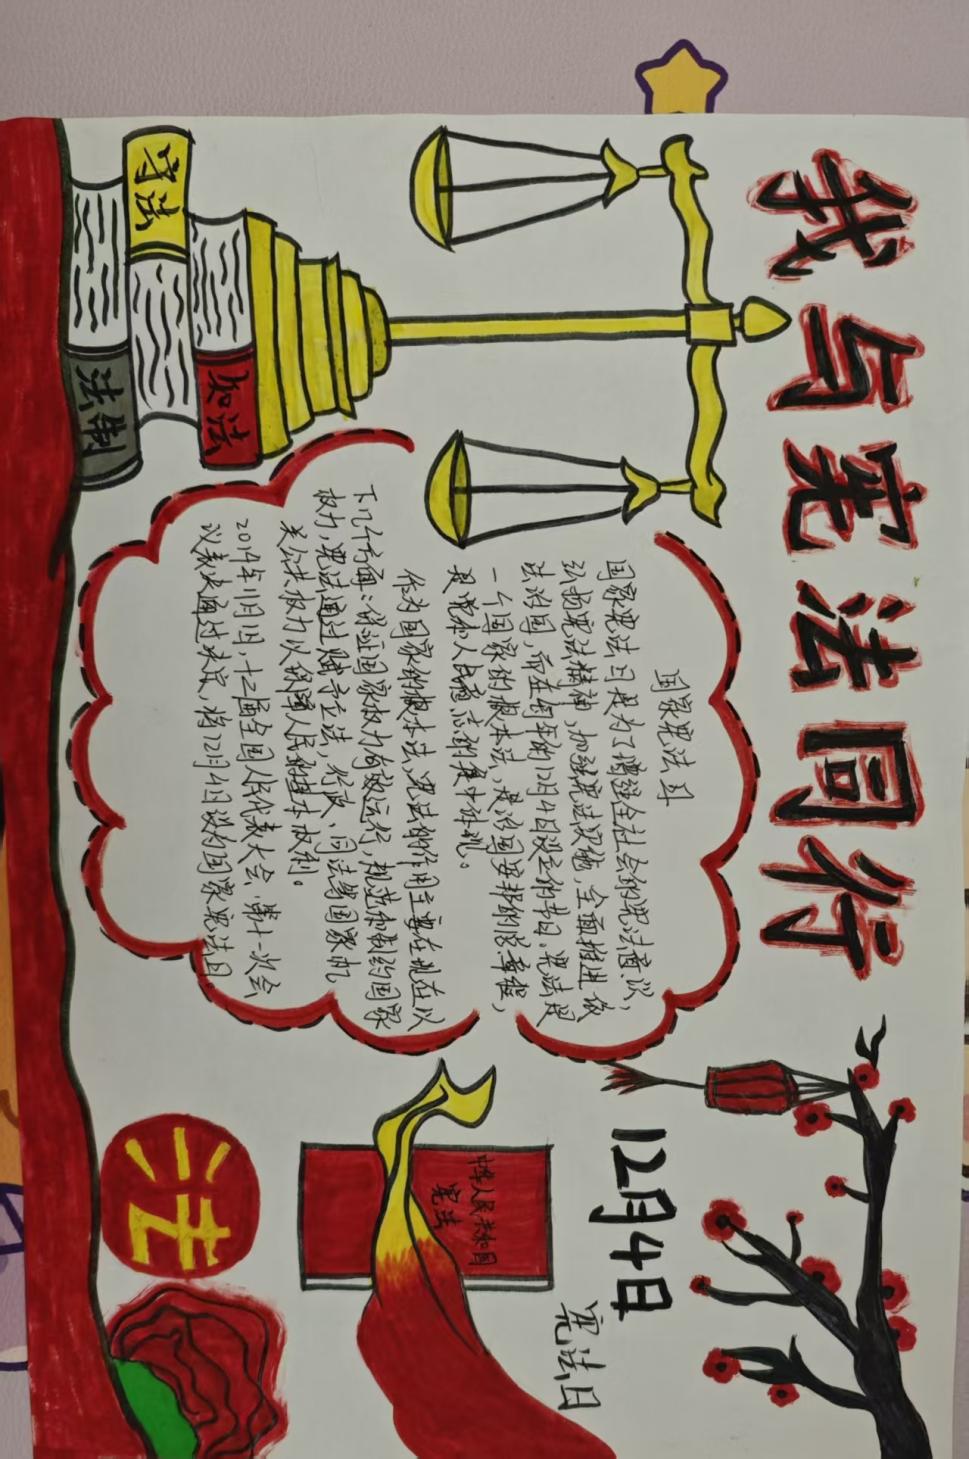 我与宪法同行
守法
知法
法制
国家宪法日
国家宪法日是为了增强全社会的宪法意识,
弘扬宪法精神,加强宪法实施,全面推进依
法治国,而在每年的12月4日设立的节日。宪法是
一个国家的根本法,是治国安邦的总章程,
是党和人民意志的集中体现。
作为国家的根本法,宪法的作用主要在现在以
下几个方面:保证国家权力有效运行,规范和制约国家
权力,宪法通过赋予立法、行政、司法等国家机
关公共权力以保障人民的基本权利。
2014年11月1日,十二届全国人民代表大会第十一次会
议表决通过决定,将12月4日设为国家宪法日
12月4日
宪法日
中华人民共和国
宪法
法